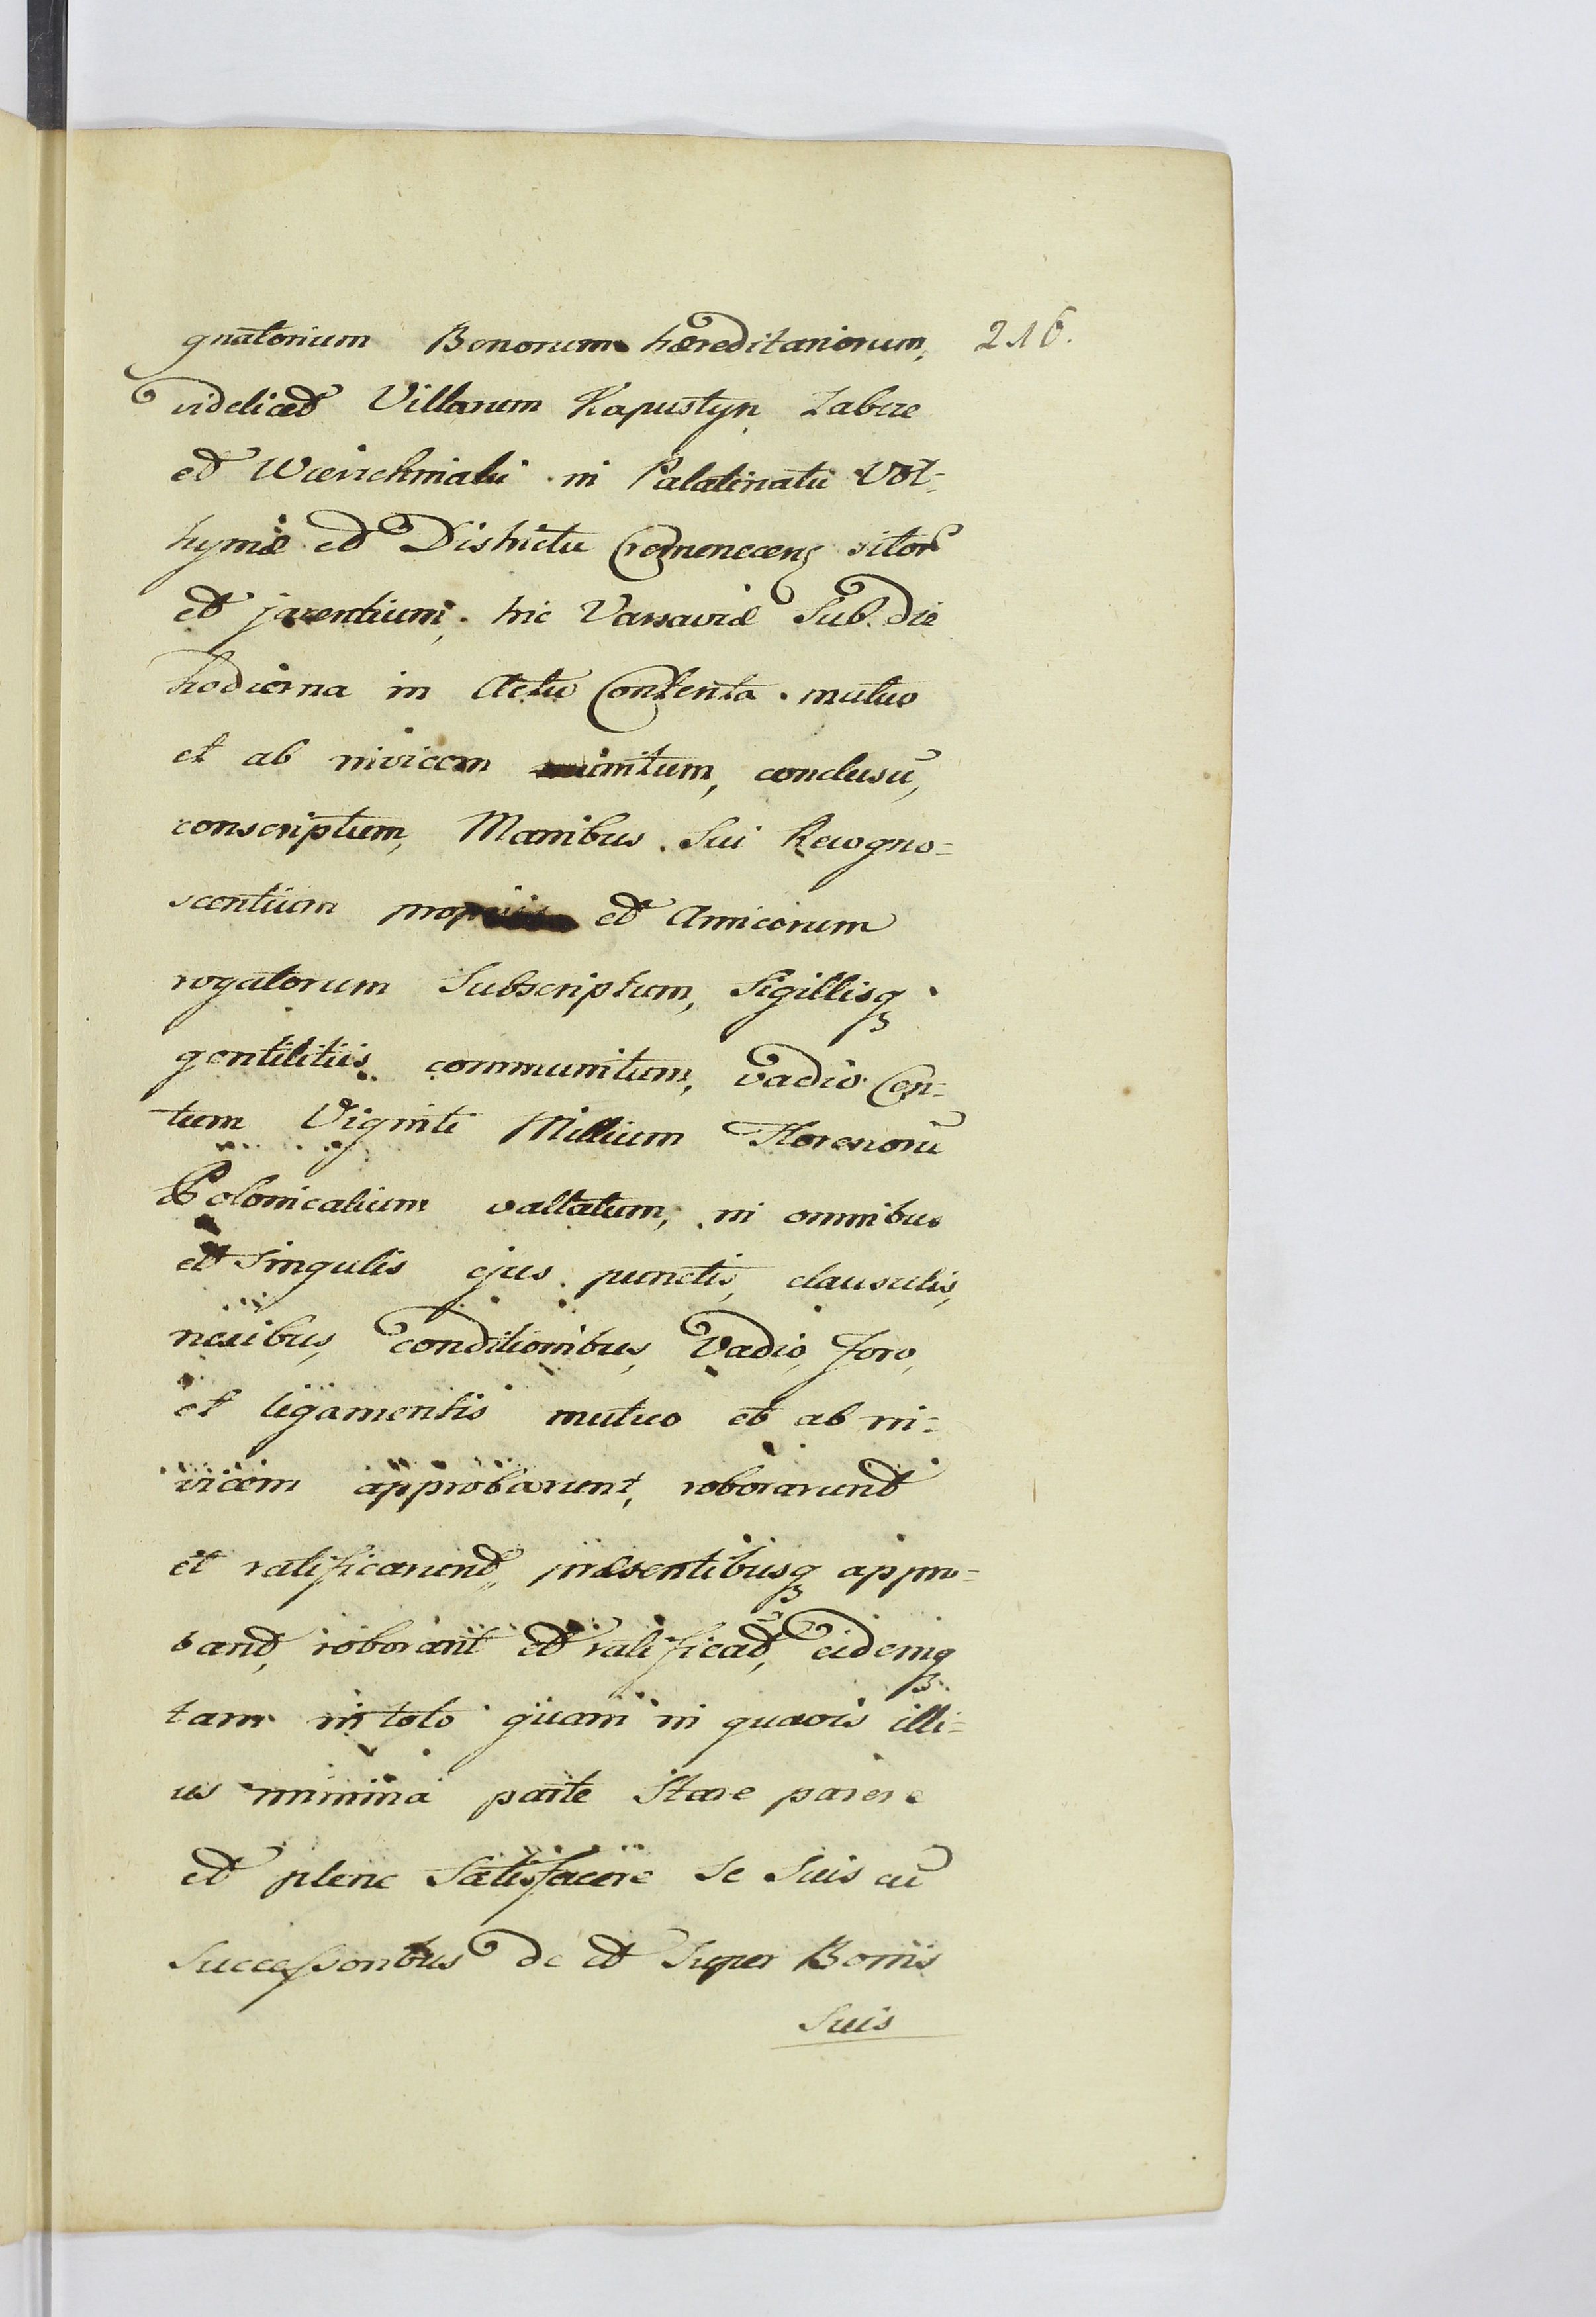 gnatorium Bonorum hæreditariorum, 216.
videlicet Villarum Kapustyn Zabcze
et Wierichniaki in Palatinatu Vol=
hyniæ et Districtu Cremenecens sitor
et jacentium, hic Varsaviæ Sub die
hodierna in Actu Contenta mutuo
et ab invicem initum, conclusũ,
conscriptum, Manibus Sui Recogno=
scentium et Amicorum
rogatorum Subscriptum, Sigillisq
gentilitiis communitum, vadio Cen=
tum Viginti Millium Florenorũ
Polonicalium vallatum, in omnibus
et Singulis ejus punctis, clausulis,
nexibus, conditionibus, Vadio, foro,
et ligamentis mutuo et ab in=
vicem approbarunt, roborarunt
et ratificarunt, præsentibusq appro=
bant, roborant et ratificat, eidemq
tam in toto quam in quavis illi=
us minima parte Stare parere
et plene Satisfacere Se Suis cũ
Successoribus de et Super Bonis
Suis